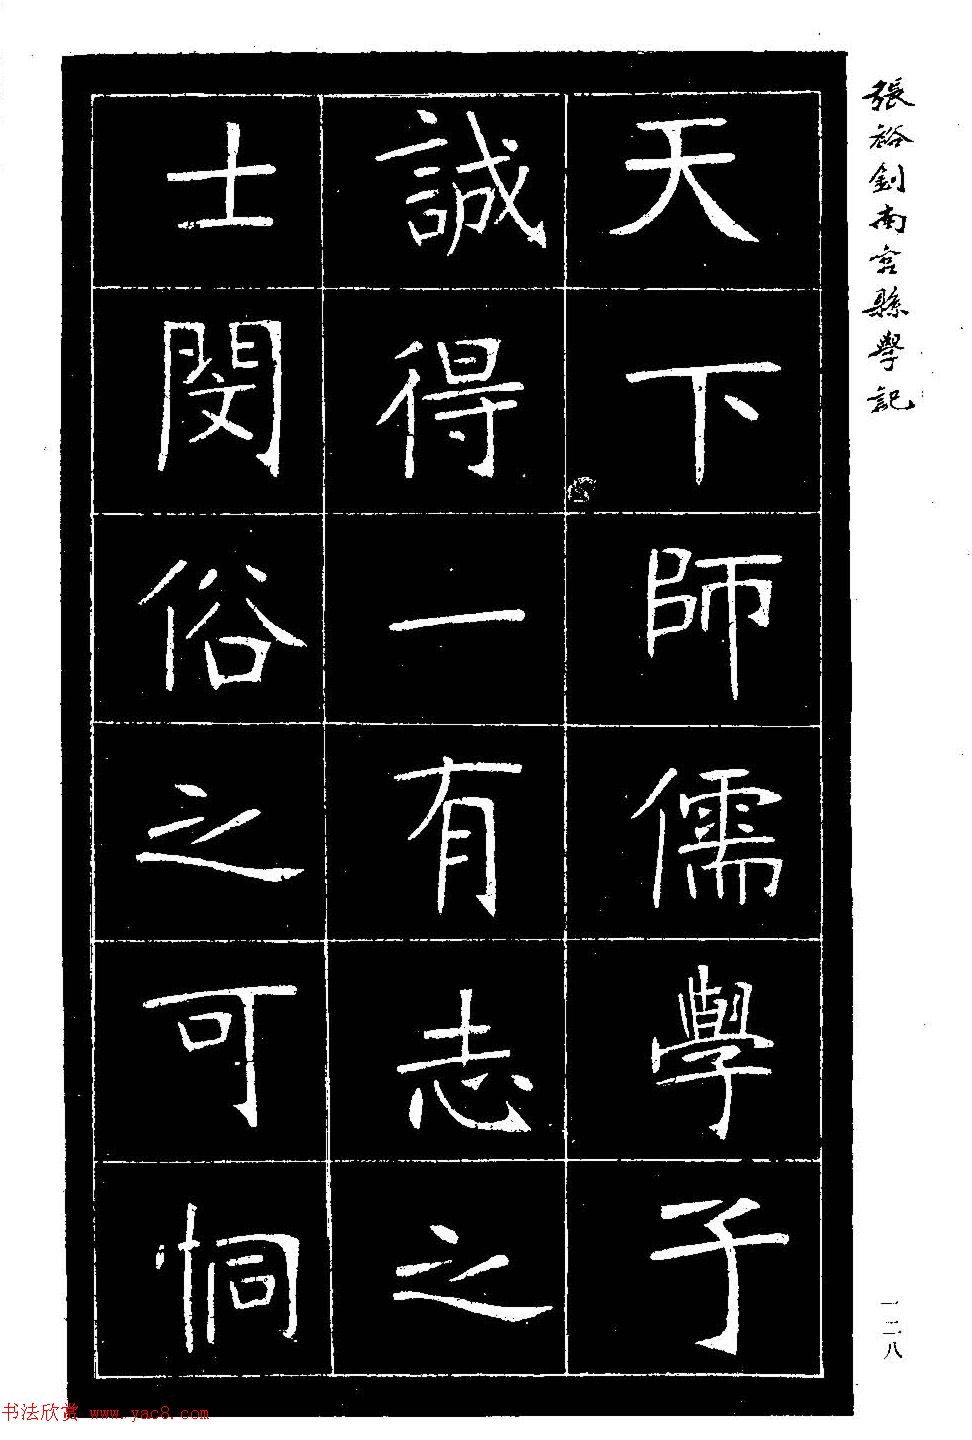 張裕釗南宮縣學記
天下師儒學子
誠得一有志之
士閔俗之可恫
一二八
书法欣赏 www.yac8.com